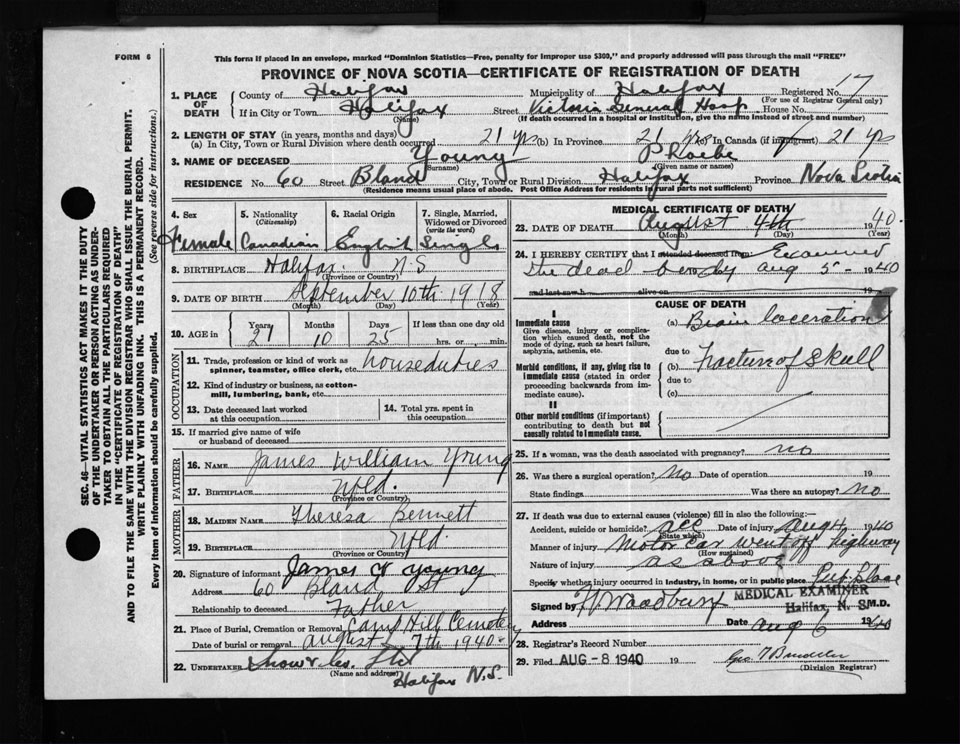 FORM 6
This form if placed in an envelope, marked "Dominion Statistics—Free, penalty for improper use $300," and properly addressed will pass through the mail "FREE"
PROVINCE OF NOVA SCOTIA—CERTIFICATE OF REGISTRATION OF DEATH
1. PLACE OF DEATH
County of Halifax Municipality of Halifax Registered No. 17
(For use of Registrar General only)
If in City or Town Halifax Street Victoria General Hosp House No.
(Name) (If death occurred in a hospital or institution, give the name instead of street and number)
2. LENGTH OF STAY (in years, months and days)
(a) In City, Town or Rural Division where death occurred 21 yrs (b) In Province 21 yrs In Canada (if immigrant) 21 yrs
3. NAME OF DECEASED Young Phoebe
(Surname) (Given name or names)
RESIDENCE No. 60 Street Bland City, Town or Rural Division Halifax Province Nova Scotia
(Residence means usual place of abode. Post Office Address for residents in rural parts not sufficient)
4. Sex Female
5. Nationality (Citizenship) Canadian
6. Racial Origin English
7. Single, Married, Widowed or Divorced (write the word) Single
8. BIRTHPLACE Halifax N.S
(Province or Country)
9. DATE OF BIRTH September 10th 1918
(Month) (Day) (Year)
10. AGE in Years 21 Months 10 Days 25 If less than one day old
hrs. or min.
OCCUPATION
11. Trade, profession or kind of work as spinner, teamster, office clerk, etc. houseduties
12. Kind of industry or business, as cotton-mill, lumbering, bank, etc.
13. Date deceased last worked at this occupation
14. Total yrs. spent in this occupation
15. If married give name of wife or husband of deceased
FATHER
16. NAME James William Young
17. BIRTHPLACE Nfld.
(Province or Country)
MOTHER
18. MAIDEN NAME Theresa Bennett
19. BIRTHPLACE Nfld.
(Province or Country)
20. Signature of informant James W Young
Address 60 Bland St
Relationship to deceased Father
21. Place of Burial, Cremation or Removal Camp Hill Cemetery
Date of burial or removal August 7th 1940
22. UNDERTAKER Snow & Co. Ltd
(Name and address)
Halifax N.S.
MEDICAL CERTIFICATE OF DEATH
23. DATE OF DEATH August 4th 1940.
(Month) (Day) (Year)
24. I HEREBY CERTIFY that I attended deceased from: Examined
the dead body Aug 5 - 1940
and last saw h alive on 19
CAUSE OF DEATH
I
Immediate cause
Give disease, injury or complication which caused death, not the mode of dying, such as heart failure, asphyxia, asthenia, etc.
(a) Brain laceration
due to
Morbid conditions, if any, giving rise to immediate cause (stated in order proceeding backwards from immediate cause).
(b) Fracture of Skull
due to
(c)
II
Other morbid conditions (if important) contributing to death but not causally related to immediate cause.
25. If a woman, was the death associated with pregnancy? no
26. Was there a surgical operation? no Date of operation 19
State findings Was there an autopsy? no
27. If death was due to external causes (violence) fill in also the following:
Accident, suicide or homicide? acc Date of injury Aug 4 1940
(State which)
Manner of injury Motor car went off highway
(How sustained)
Nature of injury as above
Specify whether injury occurred in industry, in home, or in public place
Signed by MEDICAL EXAMINER
Halifax, N. S. M.D.
Address Date Aug 6 1940
28. Registrar's Record Number
29. Filed AUG - 8 1940 19
(Division Registrar)
SEC. 46—VITAL STATISTICS ACT MAKES IT THE DUTY
OF THE UNDERTAKER OR PERSON ACTING AS UNDERTAKER TO OBTAIN ALL THE PARTICULARS REQUIRED
IN THE "CERTIFICATE OF REGISTRATION OF DEATH"
AND TO FILE THE SAME WITH THE DIVISION REGISTRAR WHO SHALL ISSUE THE BURIAL PERMIT.
WRITE PLAINLY WITH UNFADING INK. THIS IS A PERMANENT RECORD.
Every item of information should be carefully supplied. (See reverse side for instructions.)